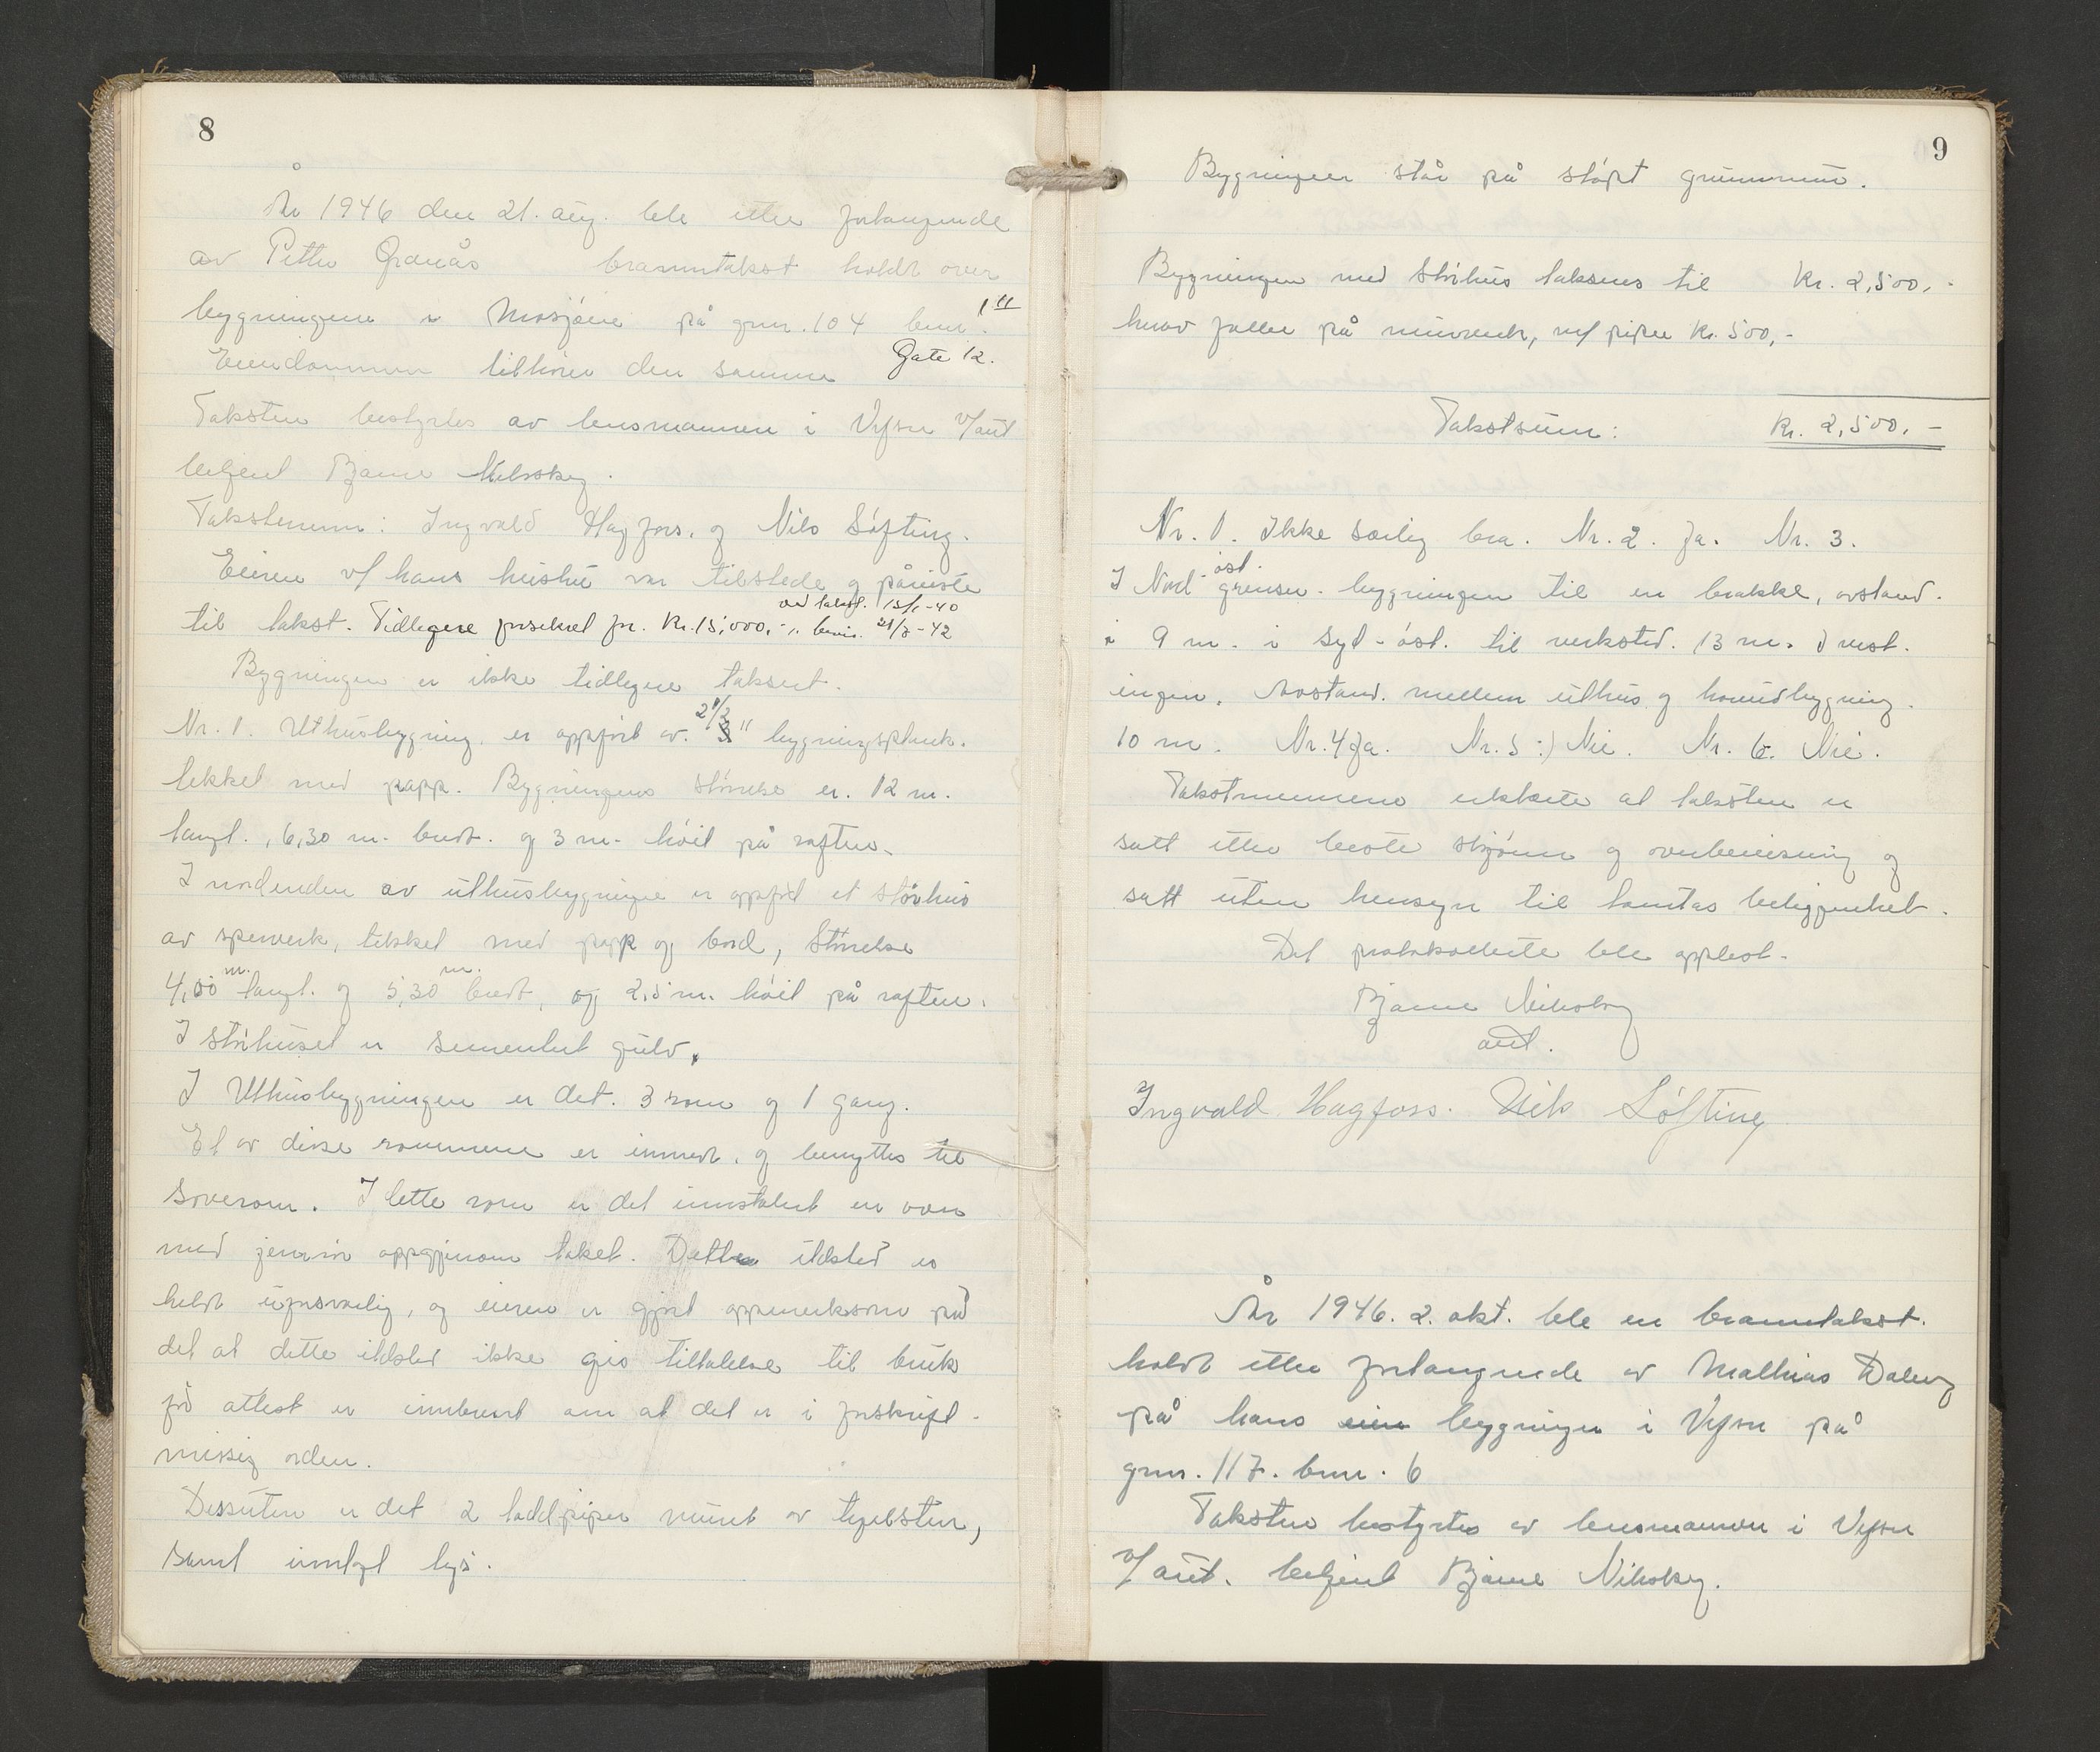 8
År 1946 den 21. aug. ble etter forlangende
av Petter Granås branntakst holdt over
bygningene i Mosjøen på gnr. 104 bnr. 1
Eiendommen tilhører den samme Gate 12.
Taksten bestyrtes av lensmannen i Vefsn v/aut
betjent Bjarne Nilsskog.
Takstmenn: Ingvald Hagfors. og Nils Løfting.
Eieren v/ hans hustru var tilstede og påviste
ved takst. 15/1-40
til takst. Tidligere forsikret for. Kr. 15,000,- 21/3-42
Bygningen er ikke tidligere taksert.
Nr. 1. Uthusbygning. er oppført av. 2 1/2" bygningsplank.
tekket med papp. Bygningens størrelse er. 12 m.
langt., 6,30 m. bredt. og 3 m. høit på raften.
I nordenden av uthusbygningen er oppført et størhus
av sperverk, tekket med papp og bord, Størrelse
4,00 m. langt. og 5,30 m. bredt, og 2,5 m. høit på raften.
I størhuset er sementert gulv.
I Uthusbygningen er det. 3 rom og 1 gang.
Et av disse rommene er innredt. og benyttes til
Soverom. I dette rom er det innstalert en ovn
med jernrør oppgjennom taket. Dette ildsted er
heldt uforsvarlig, og eieren er gjort oppmerksom på
det at dette ildsted ikke gis tillatelse til bruk
før attest er innbrent om at det er i forskrift-
messig orden.
Dessuten er det 2 teglpiper muret av teglsten,
samt innlagt lys.
9
Bygningen står på støpt grunnmur.
Bygningen med Størhus takseres til Kr. 2,500,-
hvorav faller på murverk, m/ piper Kr. 500,-
Takstsum: Kr. 2,500,-
Nr. 1. Ikke særlig bra. Nr. 2. Ja. Nr. 3.
øst.
I Nord- grenser. bygningen til en brakke, avstand.
i 9 m. i Syd-øst. til verksted. 13 m. I vest.
ingen. Avstand. mellem uthus og hovedbygning.
10 m. Nr. 4 Ja. Nr. 5 :) Nei. Nr. 6. Nei.
Takstmennene erklærte at taksten er
satt etter beste skjønn og overbevisning og
satt uten hensyn til tomtas beliggenhet.
Det protokollerte ble opplest.
Bjarne Nilsskog
aut.
Ingvald Hagfors. Nils Løfting
År 1946. 2. okt. ble en branntakst.
holdt etter forlangende av Mathias Dalen
på hans bygninger i Vefsn på
gnr. 117. bnr. 6
Taksten bestyrtes av lensmannen i Vefsn
v/ aut. betjent Bjarne Nilsskog.